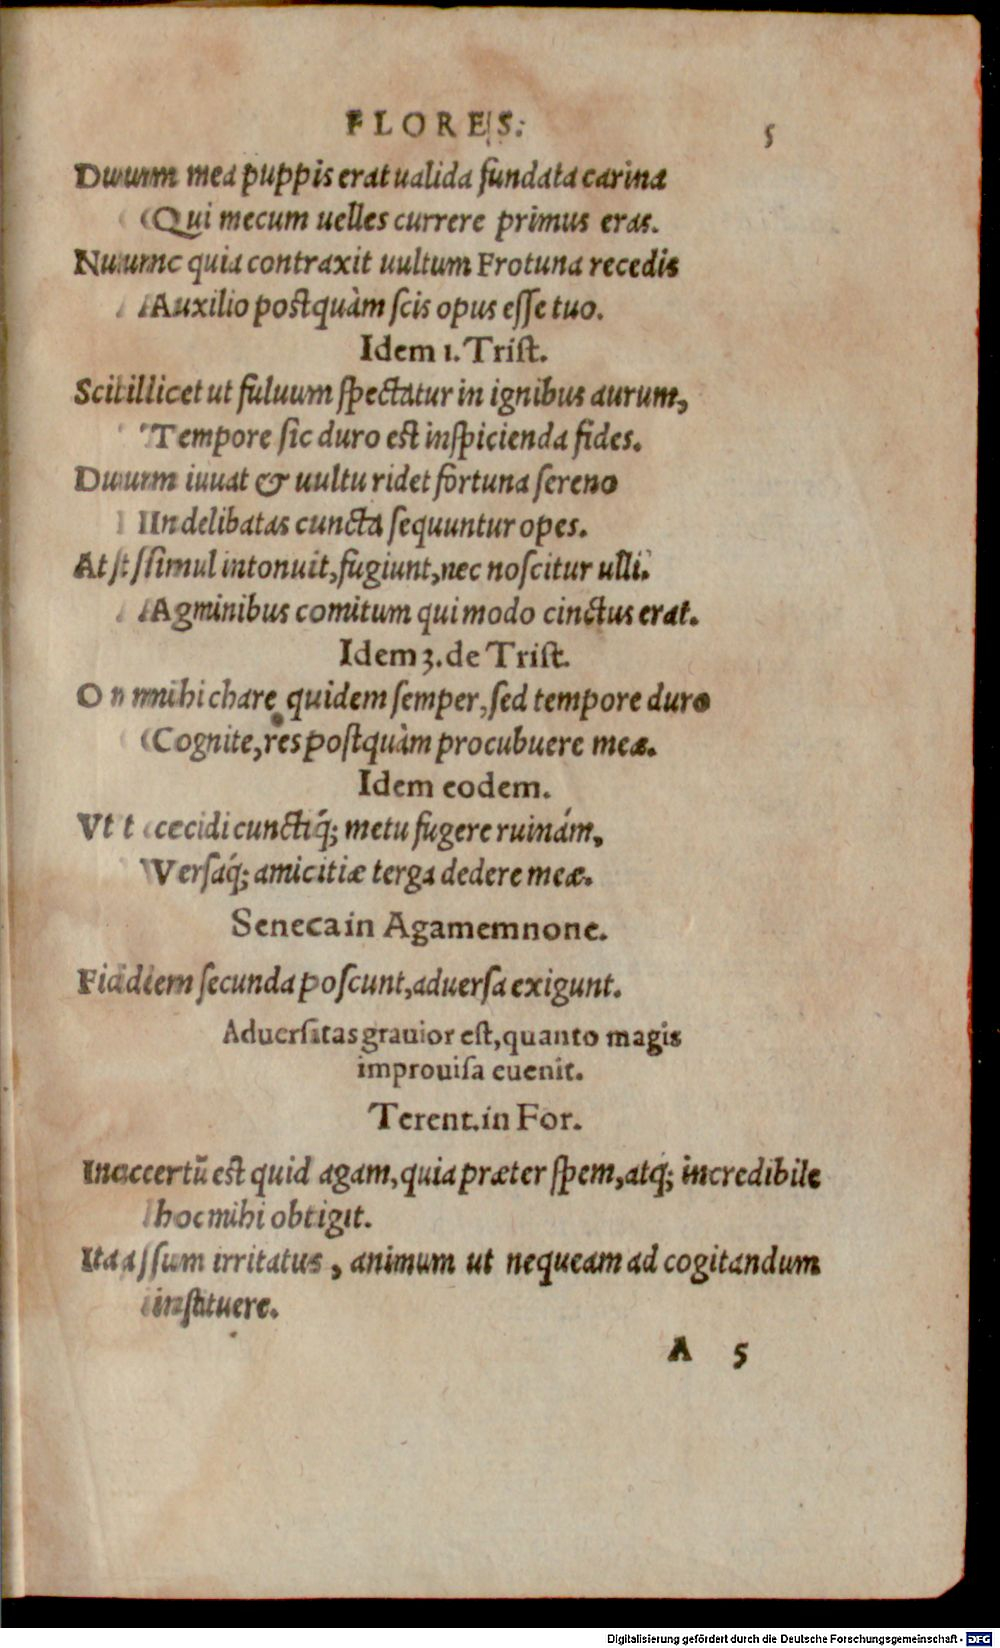 FLORES. 5
Dum mea puppis erat ualida fundata carina
Qui mecum uelles currere primus eras.
Nunc quia contraxit uultum Frotuna recedis
Auxilio postquàm scis opus esse tuo.
Idem 1. Trist.
Scilicet ut fuluum spectatur in ignibus aurum,
Tempore sic duro est inspicienda fides.
Dum iuuat & uultu ridet fortuna sereno
Indelibatas cuncta sequuntur opes.
At simul intonuit, fugiunt, nec noscitur ulli.
Agminibus comitum qui modo cinctus erat.
Idem 3. de Trist.
O mihi chare quidem semper, sed tempore duro
Cognite, res postquàm procubuere meæ.
Idem eodem.
Vt cecidi cunctiq́; metu fugere ruinám,
Versaq́; amicitiæ terga dedere meæ.
Seneca in Agamemnone.
Fidem secunda poscunt, aduersa exigunt.
Aduersitas grauior est, quanto magis
improuisa euenit.
Terent. in For.
Incertũ est quid agam, quia præter spem, atq́; incredibile
hoc mihi obtigit.
Ita sum irritatus, animum ut nequeam ad cogitandum
instituere.
A 5
Digitalisierung gefördert durch die Deutsche Forschungsgemeinschaft - DFG